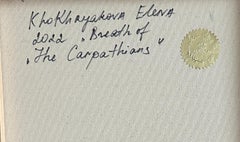 Khokhryakova Elena
2022 „Breath of
„The Carpathians"